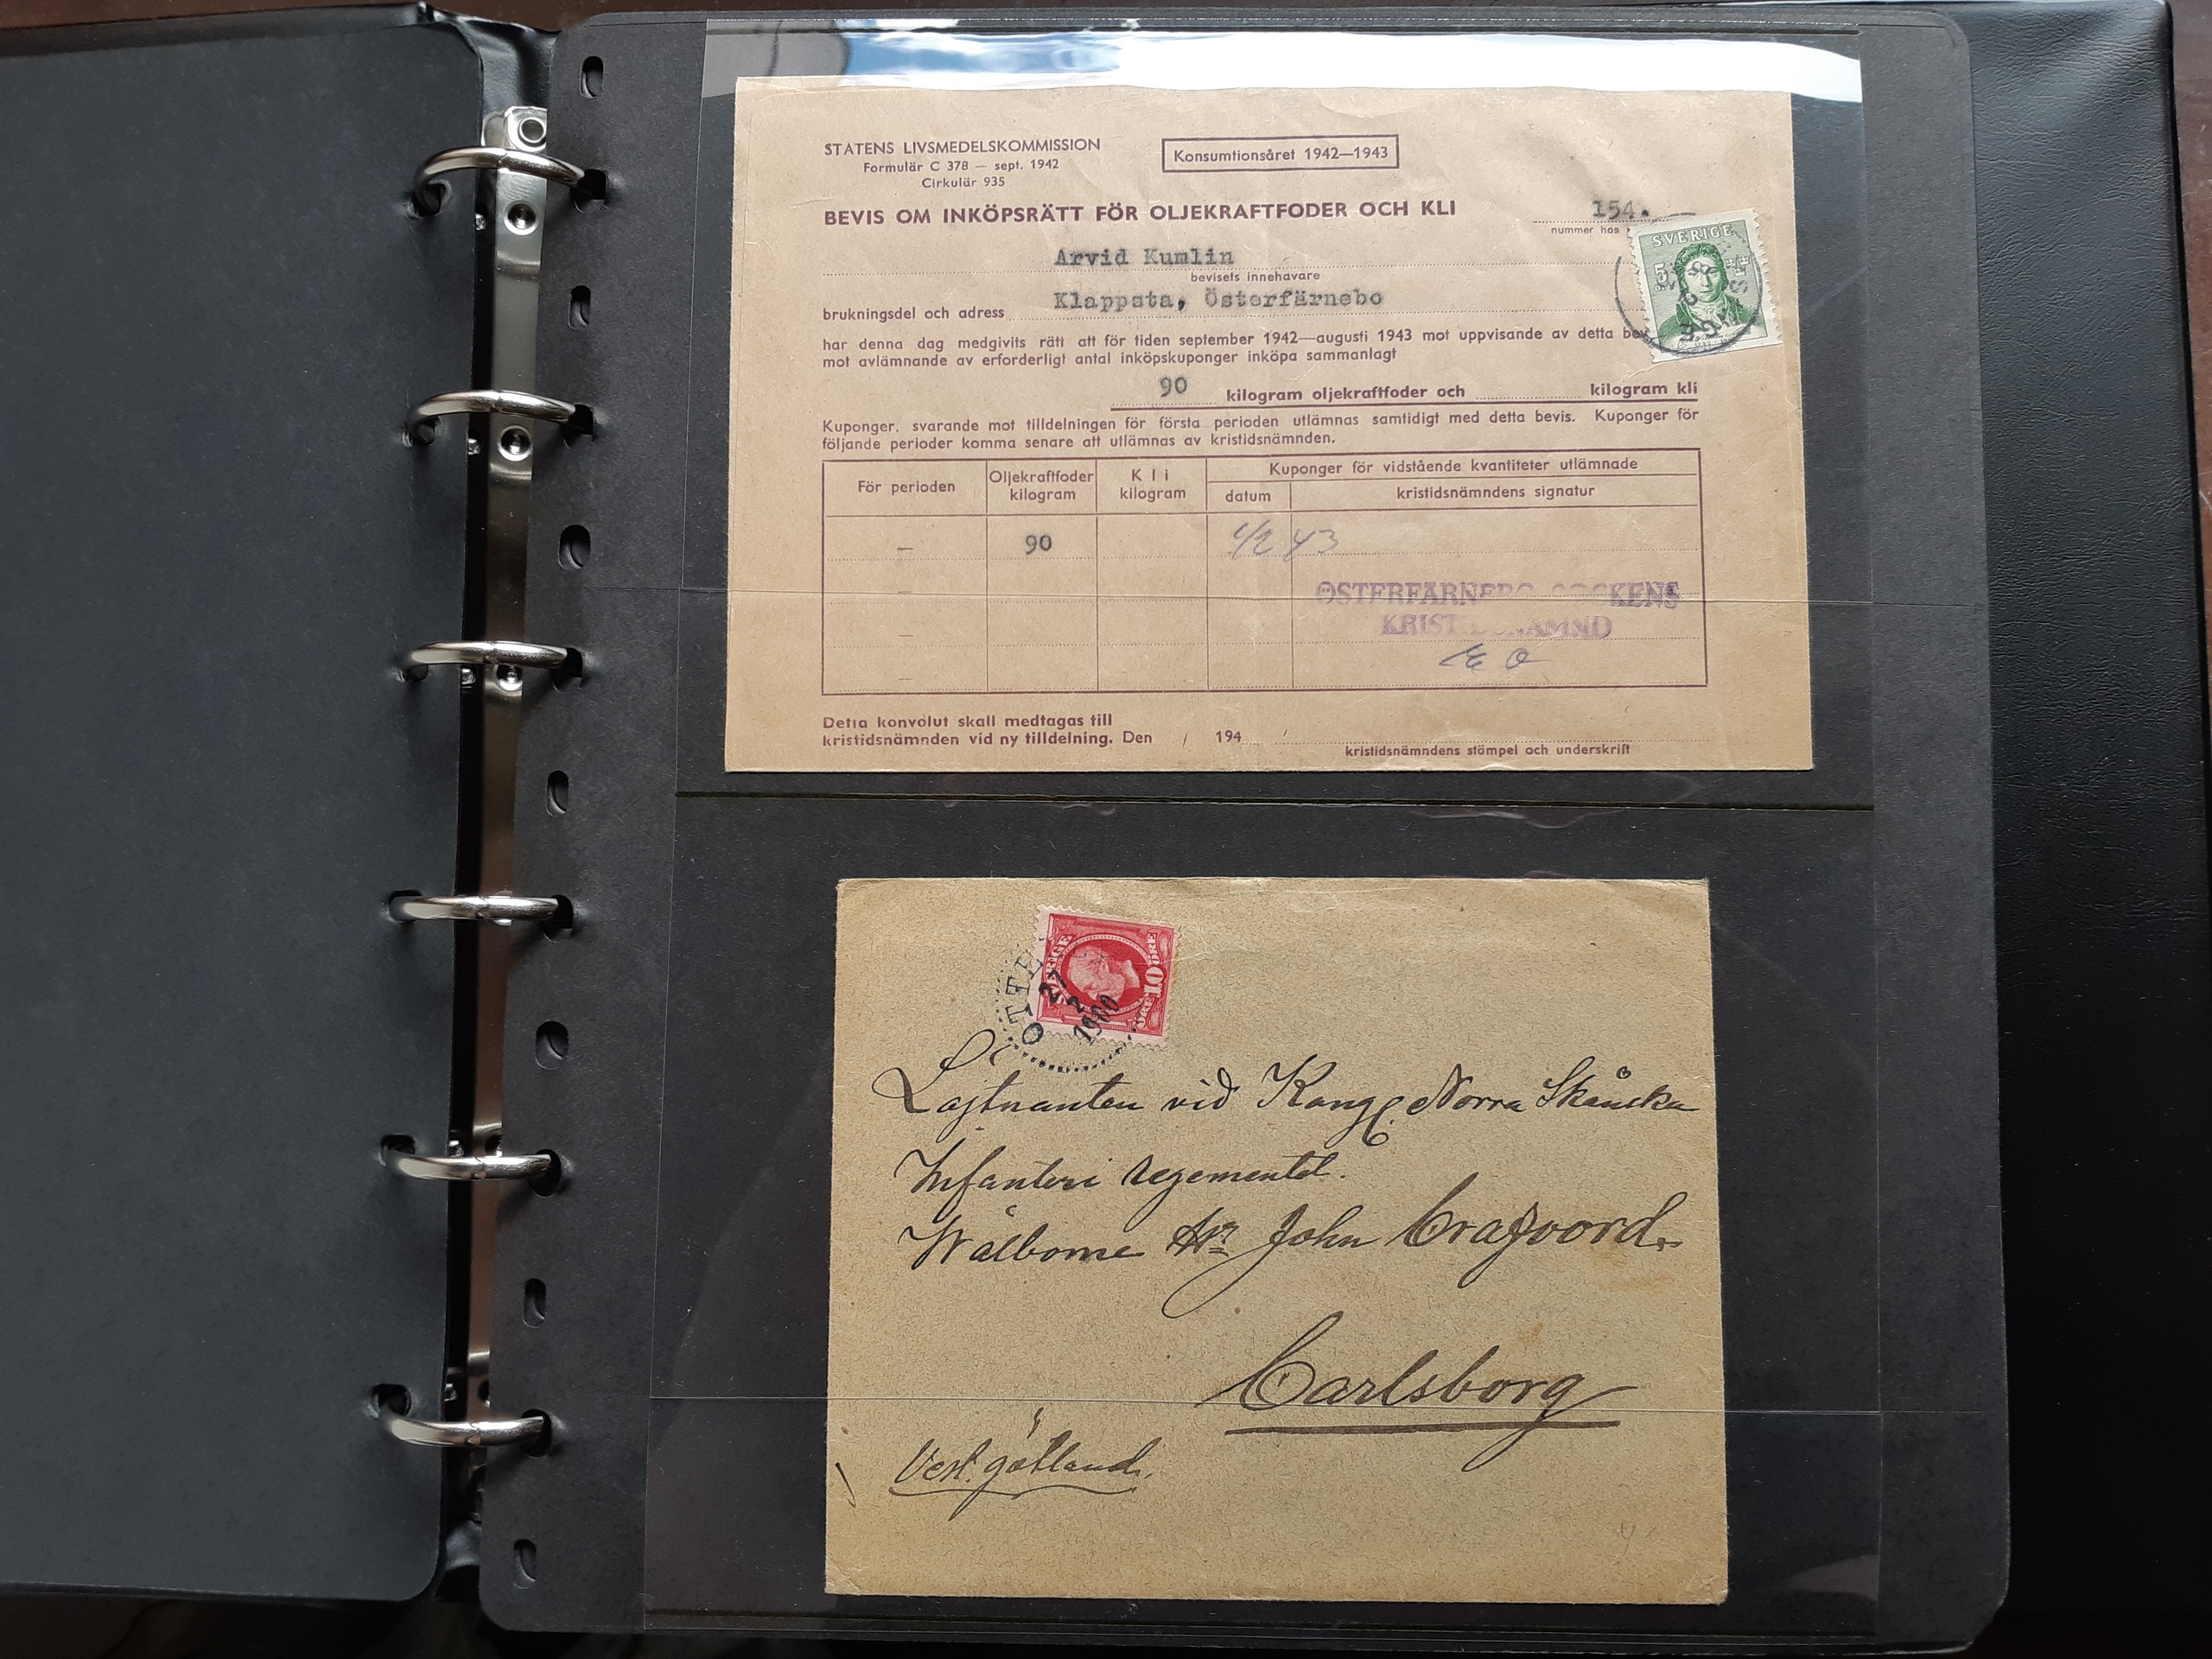 STATENS LIVSMEDELSKOMMISSION
Formulär C 378 — sept. 1942
Cirkulär 935
Konsumtionsåret 1942—1943
BEVIS OM INKÖPSRÄTT FÖR OLJEKRAFTFODER OCH KLI
154.
nummer hos
Arvid Kumlin
bevisets innehavare
Klappsta, Österfärnebo
brukningsdel och adress
SVERIGE
5
har denna dag medgivits rätt att för tiden september 1942—augusti 1943 mot uppvisande av detta bev
mot avlämnande av erforderligt antal inköpskuponger inköpa sammanlagt
90 kilogram oljekraftfoder och kilogram kli
Kuponger, svarande mot tilldelningen för första perioden utlämnas samtidigt med detta bevis. Kuponger för
följande perioder komma senare att utlämnas av kristidsnämnden.
För perioden
Oljekraftfoder
kilogram
Kli
kilogram
Kuponger för vidstående kvantiteter utlämnade
datum
kristidsnämndens signatur
— 90 4/2 43
—
ÖSTERFÄRNEBO SOCKENS
KRISTIDSNÄMND
—
E O
—
Detta konvolut skall medtagas till
kristidsnämnden vid ny tilldelning. Den / 194
kristidsnämndens stämpel och underskrift
SVERIGE
10 ÖRE
OTTE
27
2
1900
Löjtnanten vid Kongl. Norra Skånska
Infanteri regementet.
Wälborne Hr John Crafoord.
Carlsborg
Vest. götland.